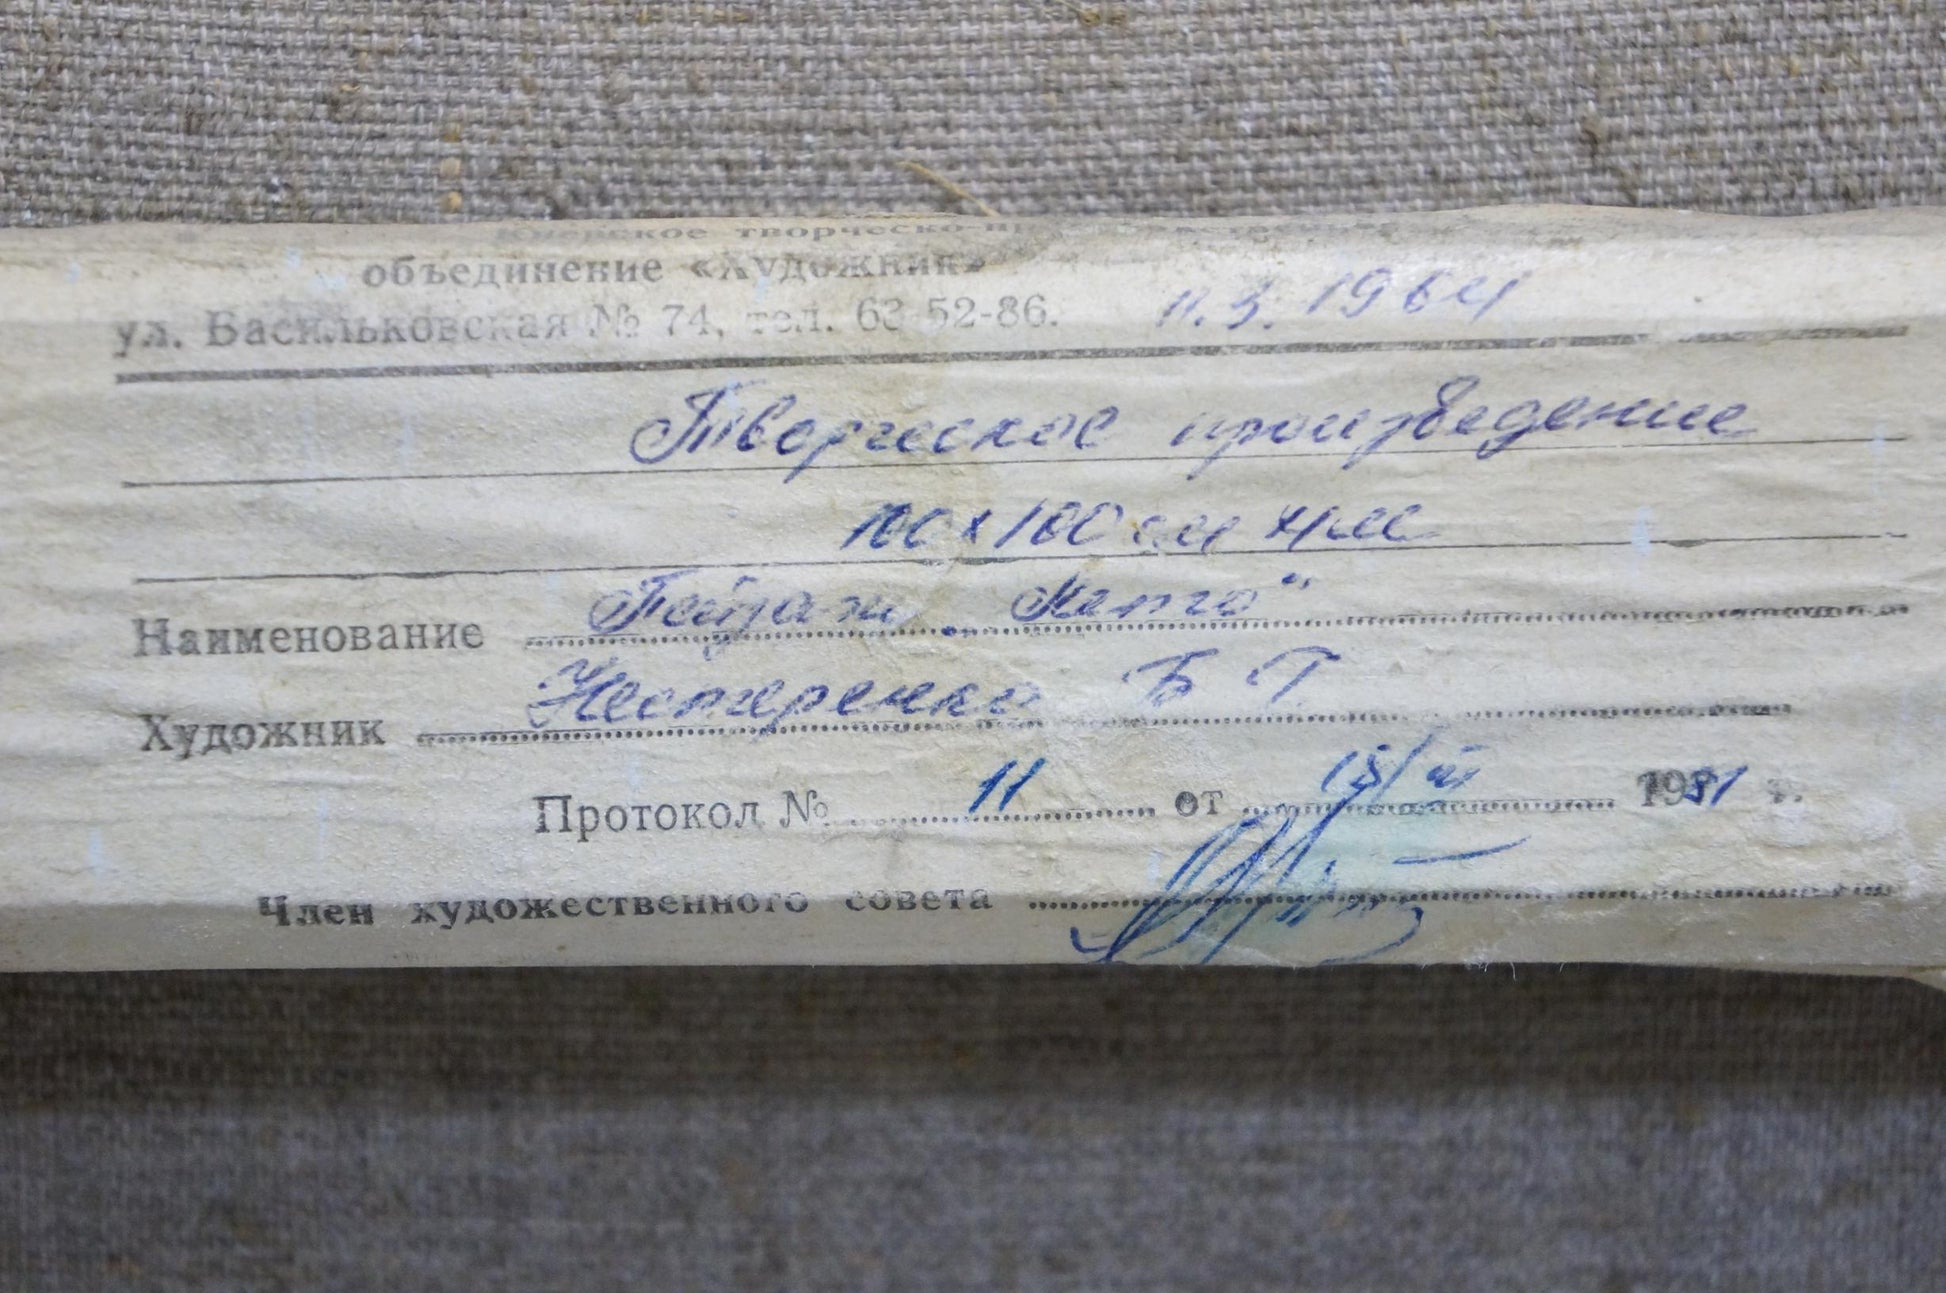 Киевское творческо-производственное
объединение «Художник»
ул. Васильковская № 74, тел. 63-52-86. 11.3.1964
Творческое произведение
100х100 см х/м
Наименование Пейзаж „Лето"
Художник Нестеренко Б Г
Протокол № 11 от 1981 г.
Член художественного совета